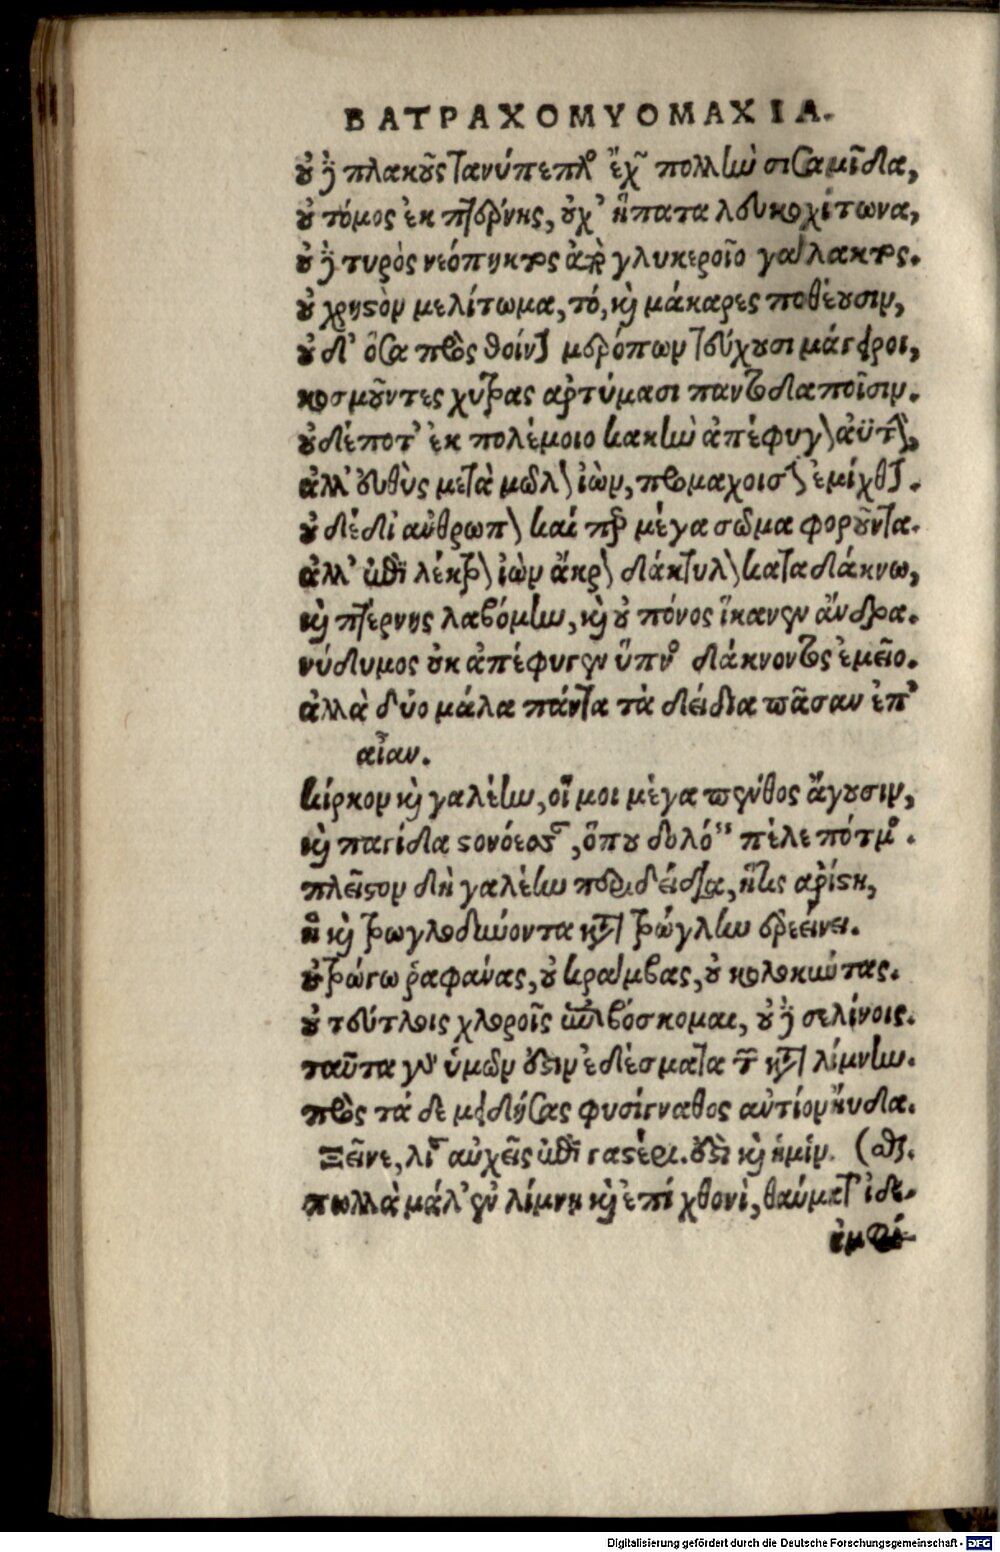 ΒΑΤΡΑΧΟΜΥΟΜΑΧΙΑ.
οὐδὲ πλακοῦς τανύπεπλος ἔχων πολλὴν σισαμῖδα,
οὐ τόμος ἐκ πτέρνης, οὐχ' ἥπατα λευκοχίτωνα,
οὐδὲ τυρὸς νεόπηκτος ἀπὸ γλυκεροῖο γάλακτος.
οὐ χρηστὸν μελίτωμα, τό, καὶ μάκαρες ποθέουσιν,
οὐδ' ὅσα πρὸς θοίνην μερόπων τεύχουσι μάγειροι,
κοσμοῦντες χύτρας ἀρτύμασι παντοδαποῖσιν.
οὐδέποτ' ἐκ πολέμοιο κακὴν ἀπέφυγον ἀϋτήν,
ἀλλ' εὐθὺς μετὰ μῶλον ἰὼν, προμάχοισιν ἐμίχθην.
οὐ δέδι' ἄνθρωπον καί περ μέγα σῶμα φοροῦντα.
ἀλλ' ἐπὶ λέκτρον ἰὼν ἄκρον δάκτυλον καταδάκνω,
καὶ πτέρνης λαβόμην, καὶ οὐ πόνος ἵκανεν ἄνδρα.
νύδυμος οὐκ ἀπέφυγεν ὕπνος δάκνοντος ἐμεῖο.
ἀλλὰ δύο μάλα πάντα τὰ δείδια πᾶσαν ἐπ'
αἶαν.
κίρκον καὶ γαλέην, οἵ μοι μέγα πένθος ἄγουσιν,
καὶ παγίδα στονόεσσαν, ὅπου δολόεις πέλε πότμος.
πλεῖστον δὴ γαλέην περιδείδια, ἥτις ἀρίστη,
ἣ καὶ τρωγλοδύνοντα κατὰ τρώγλην ἐρεείνει.
οὐ τρώγω ῥαφάνας, οὐ κράμβας, οὐ κολοκύντας.
οὐ τεύτλοις χλοροῖς ἐπιβόσκομαι, οὐδὲ σελίνοις.
ταῦτα γὰρ ὑμῶν ἐστιν ἐδέσματα τῶν κατὰ λίμνην.
πρὸς τάδε μειδήσας φυσίγναθος ἀντίον ηὔδα.
Ξεῖνε, λίαν αὐχεῖς ἐπὶ γαστέρι. ἐστὶ καὶ ἡμῖν. (σθαι.
πολλὰ μάλ' ἐν λίμνῃ καὶ ἐπὶ χθονὶ, θαύματ' ἰδέ-
ἀμφί-
Digitalisierung gefördert durch die Deutsche Forschungsgemeinschaft - DFG